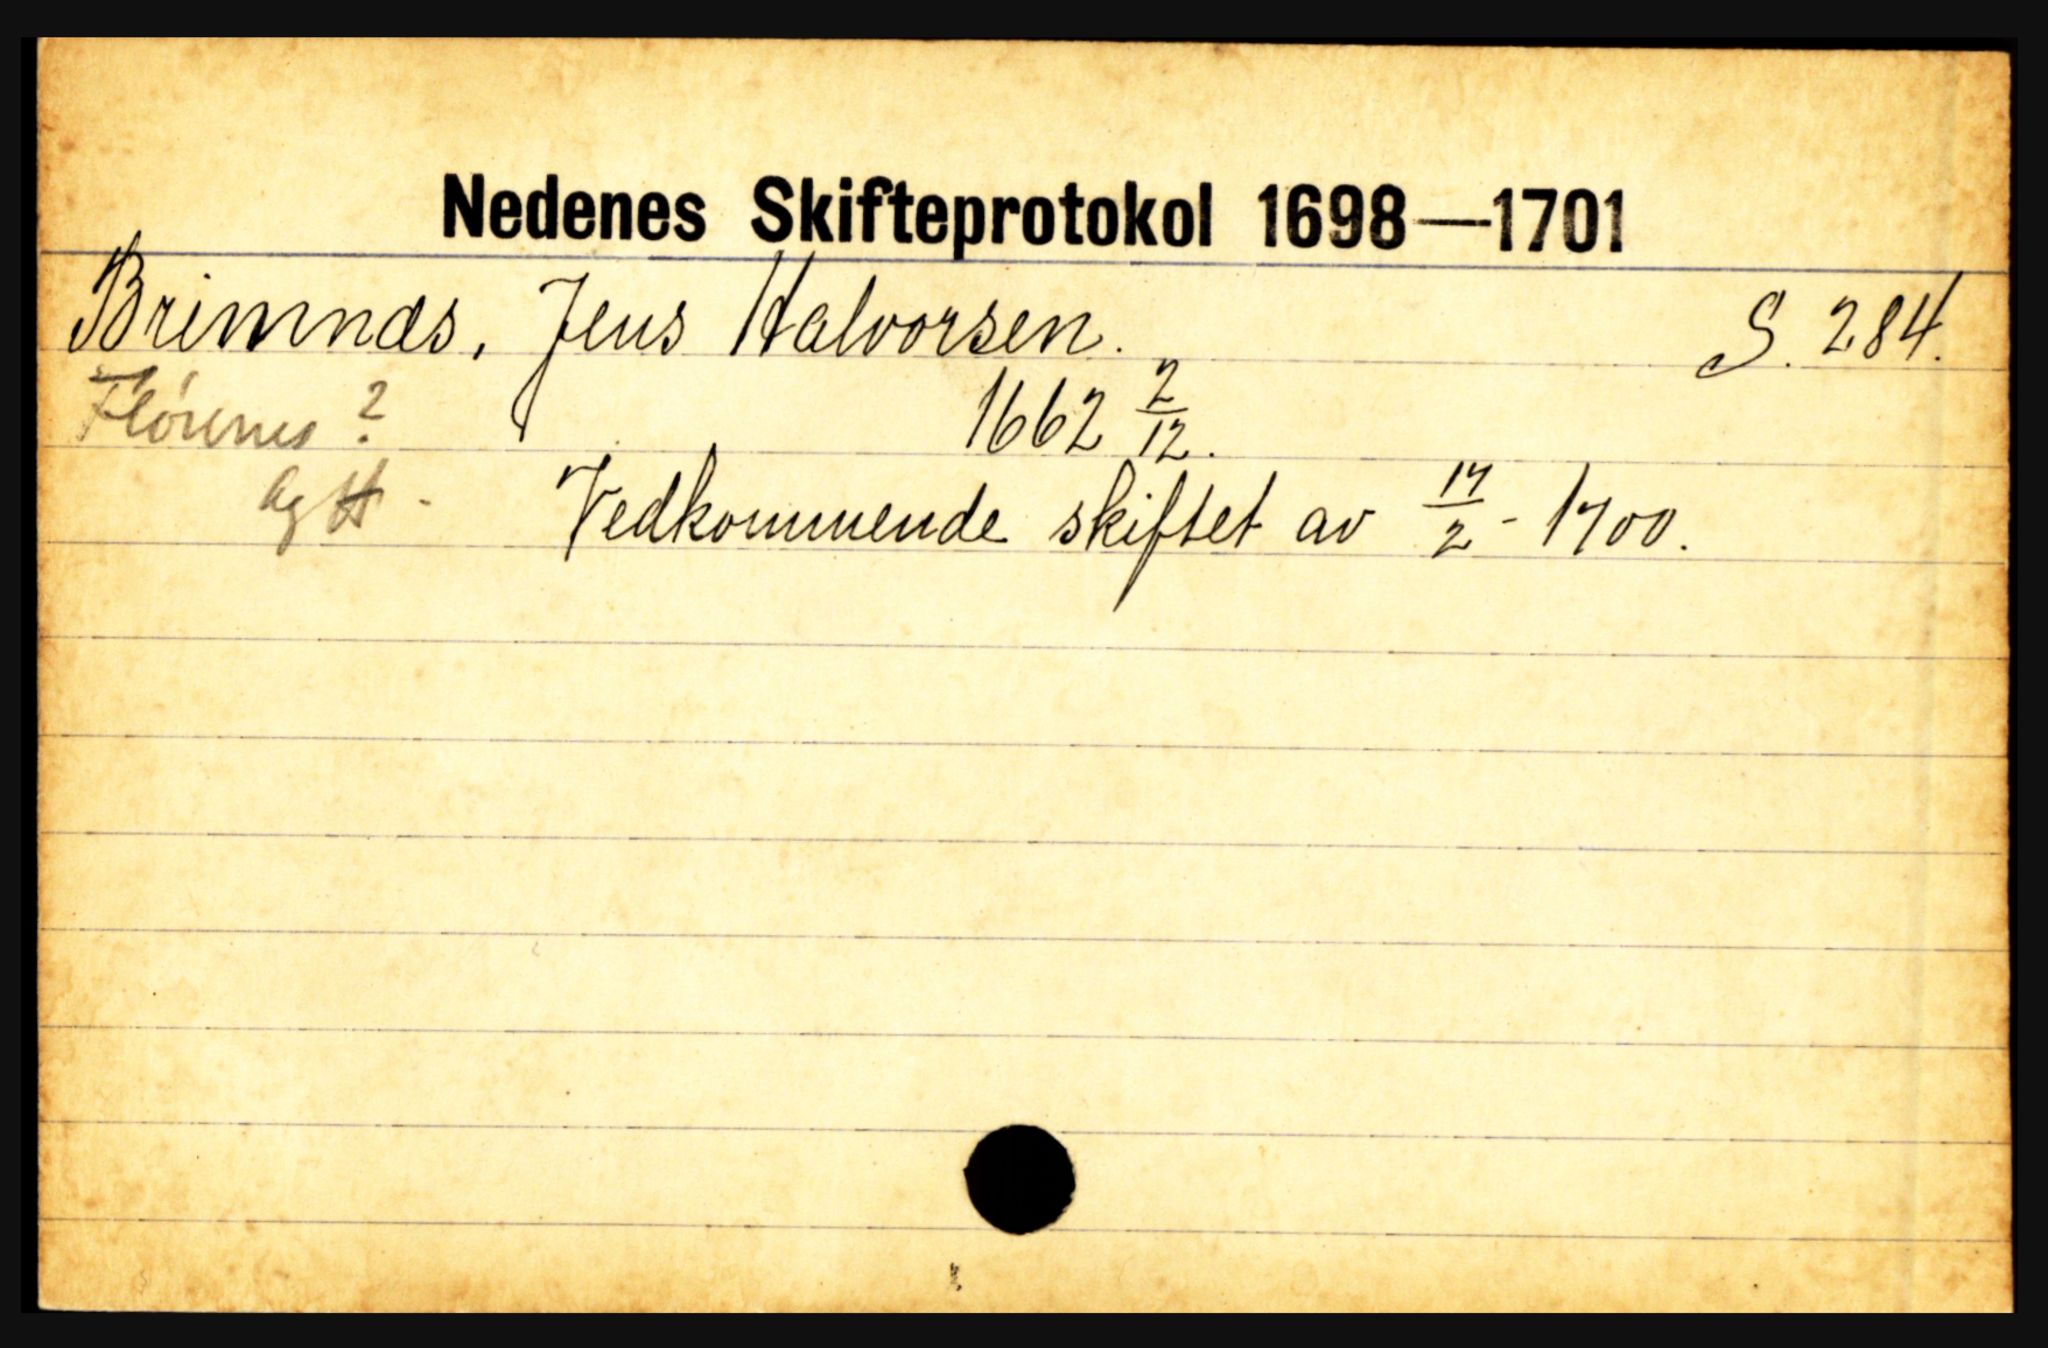 Nedenes Skifteprotokol 1698—1701
Brimnæs, Jens Halvorsen. S. 284.
Flørenes? 1662 2/12.
Vedkommende skiftet av 17/2 - 1700.